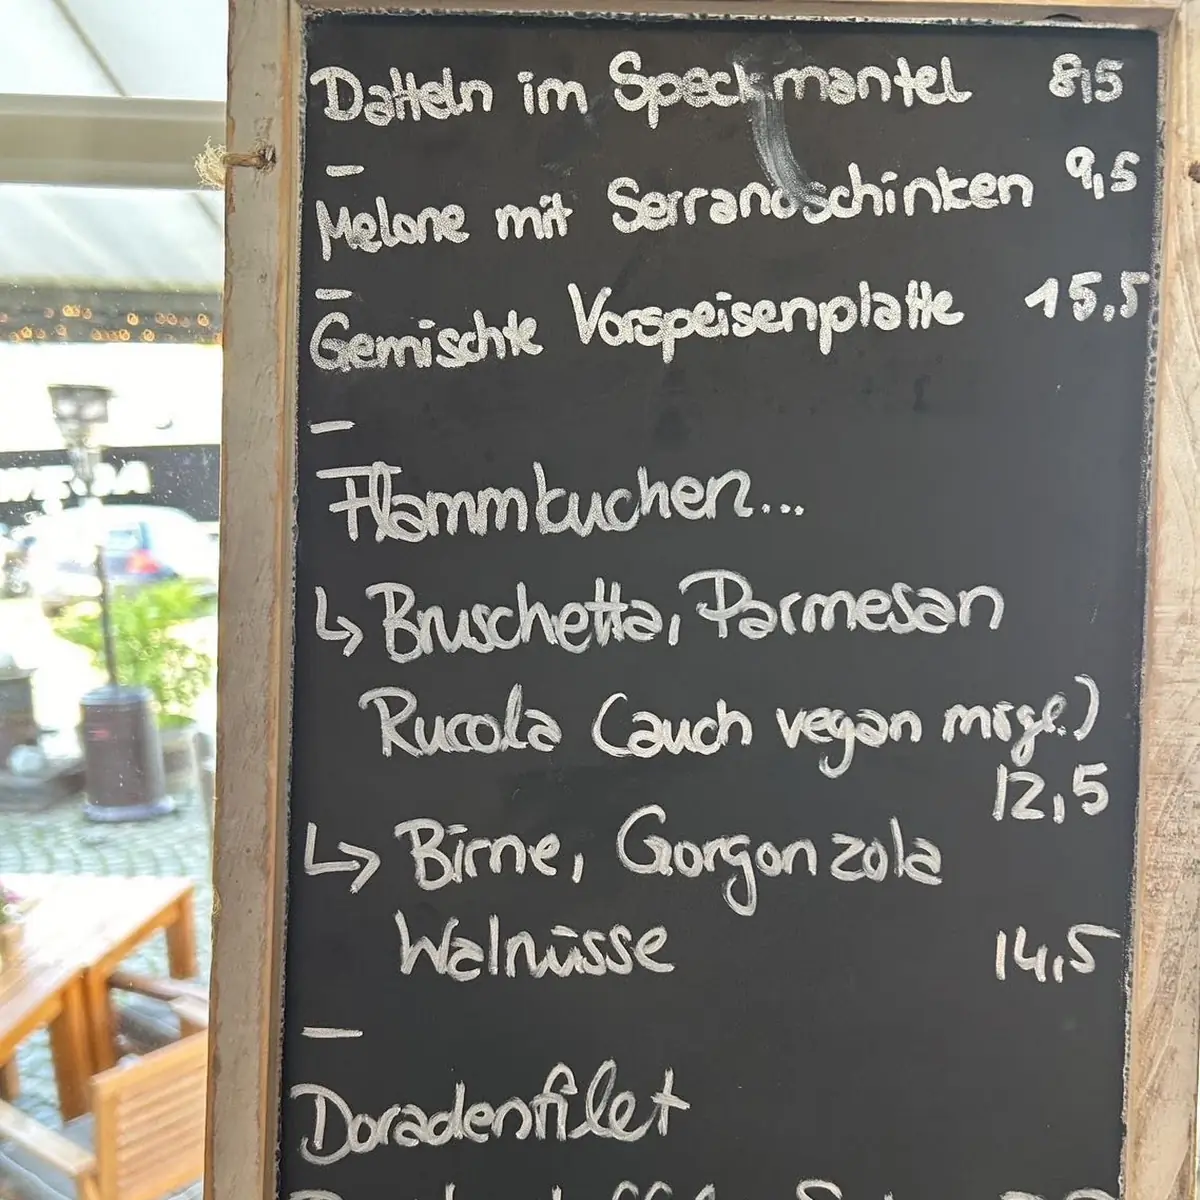 Datteln im Speckmantel 8,5
–
Melone mit Serranoschinken 9,5
–
Gemischte Vorspeisenplatte 15,5
–
Flammkuchen...
↳ Bruschetta, Parmesan
Rucola (auch vegan mögl.)
12,5
↳ Birne, Gorgonzola
Walnüsse 14,5
–
Doradenfilet